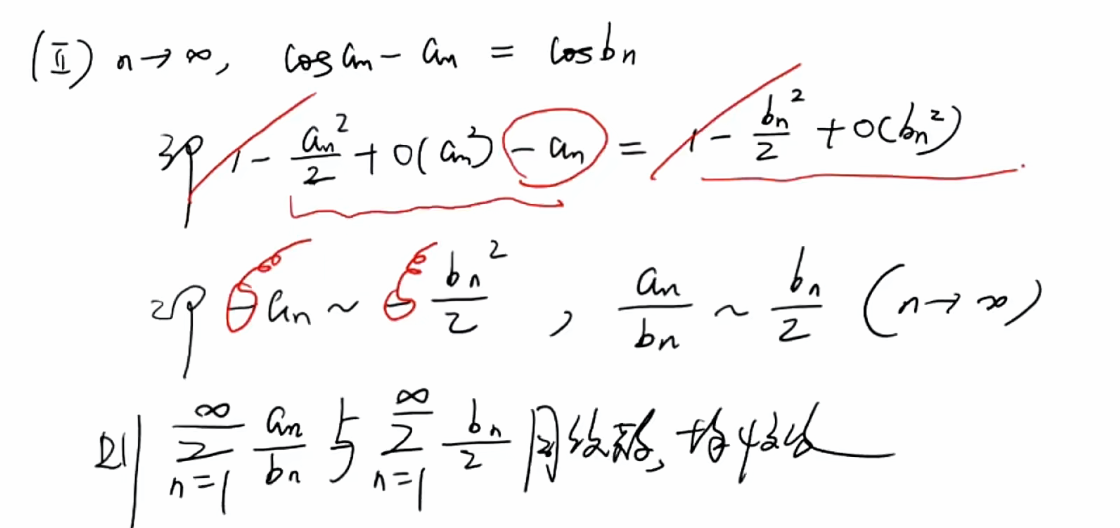 (Ⅱ) n→∞, cos aₙ - aₙ = cos bₙ
即 1 - aₙ²/2 + o(aₙ²) - aₙ = 1 - bₙ²/2 + o(bₙ²)
即 -aₙ ~ -bₙ²/2 , aₙ/bₙ ~ bₙ/2 (n→∞)
则 ∑_{n=1}^{∞} aₙ/bₙ 与 ∑_{n=1}^{∞} bₙ/2 同敛散, 均收敛